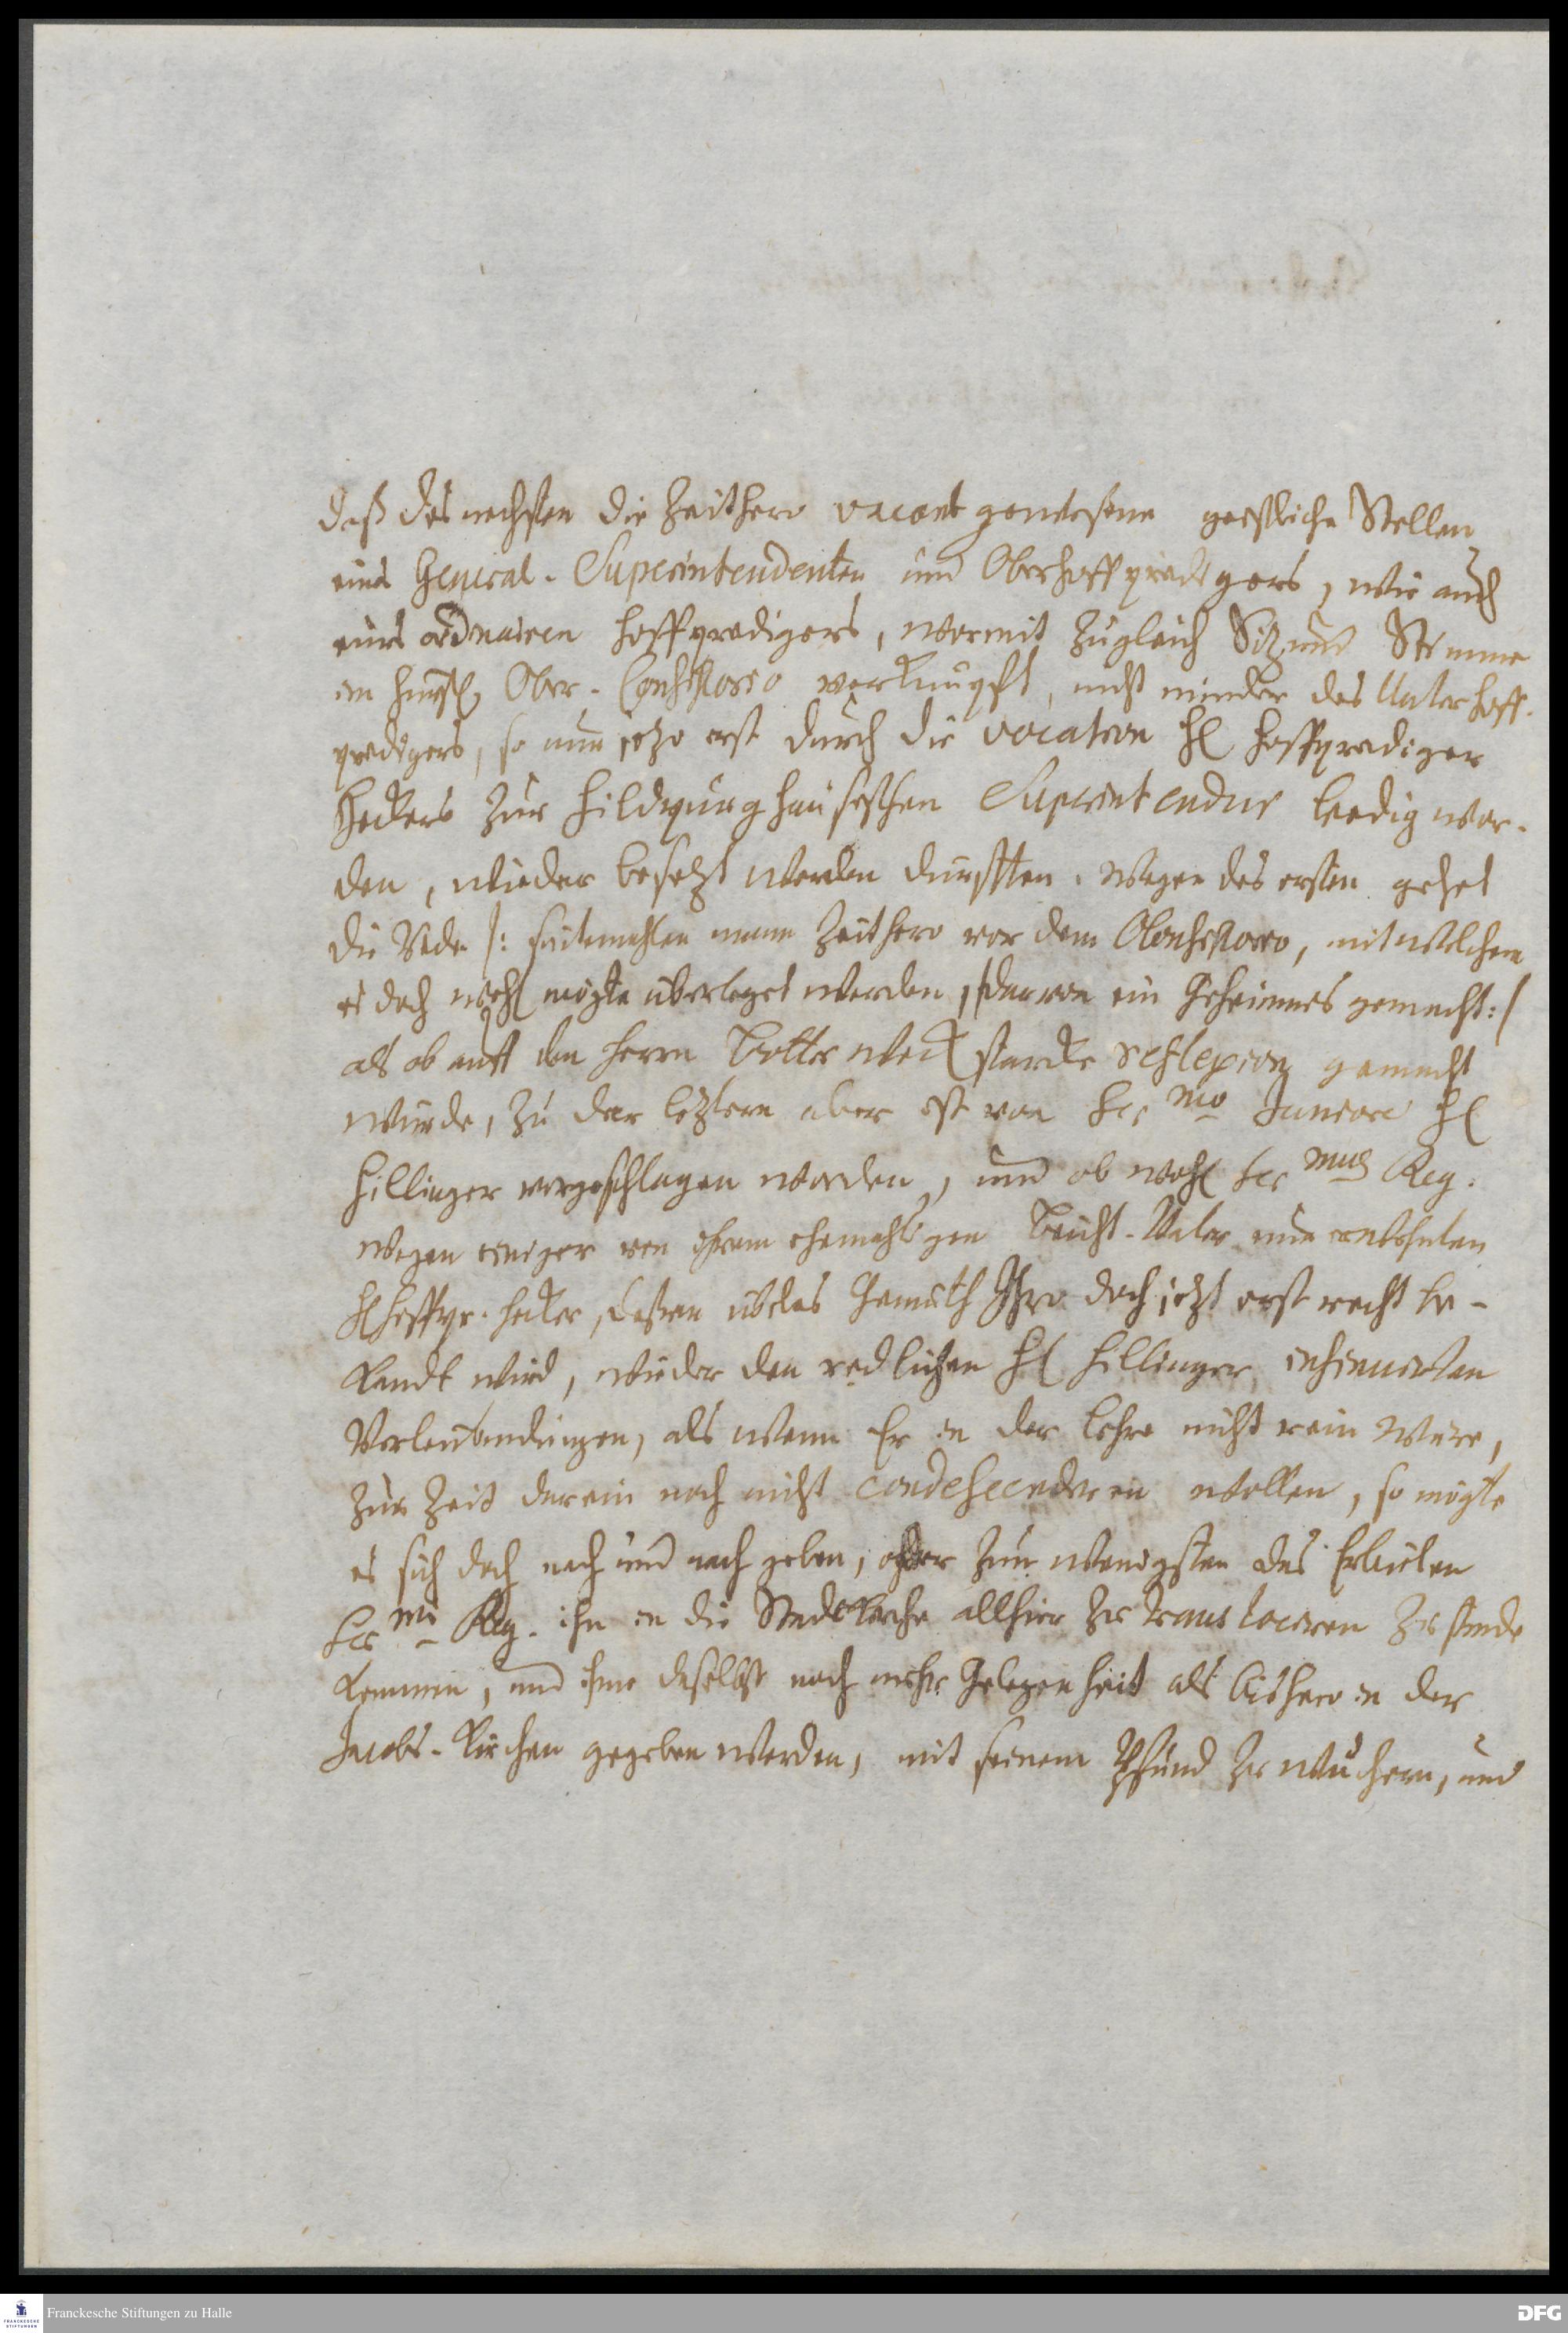 daß des nechsten die Zeithero vacant gewesene geistliche Stellen
eines General-Superintendenten und Oberhoffpredigers, wie auch
eines ordnairen Hoffpredigers, wormit zugleich Sitz und Stimme
im Ober-Consistorio verknüpft, nicht minder des Unterhoff-
predigers, so nun jetzo erst durch die vocation H Hoffprediger
Heckers zur Hildpurghäusischen Superintendur leedig wor-
den, wieder besetzt werden dürfften. Wegen des ersten gehet
die Rede /: seitemahlen mann Zeithero vor dem Consistorio, mit welchem
es doch wohl mögte überleget werden, darvon ein Geheimnes gemacht :/
als ob auff den Herrn starcke reflexion gemacht
würde, zu der letztern aber ist von Ser mo Juniore H
Hillinger vorgeschlagen worden, und ob wohl Ser mus Reg.
wegen einiger von ihrem ehemahligen Beicht-Vater nun
H Hoffpr. Hecker, deßen übeles Gemüth Ihro doch jetzt erst recht be-
kandt wird, wieder den redlichen H Hillinger insinuirten
Verleumbdungen, als wenn Er in der Lehre nicht rein wäre,
zur Zeit darein noch nicht condescenderen wollen, so mögte
es sich doch nach und nach geben, oder zum wenigsten das Erbieten
Ser mi Reg. ihn in die Stadtkirche allhier zu transloceren zu stande
kommen, und ihme daselbst noch mehr Gelegenheit als bishero in der
Jacobs-Kirchen gegeben werden, mit seinem Pfund zu wuchern, und
Franckesche Stiftungen zu Halle
DFG